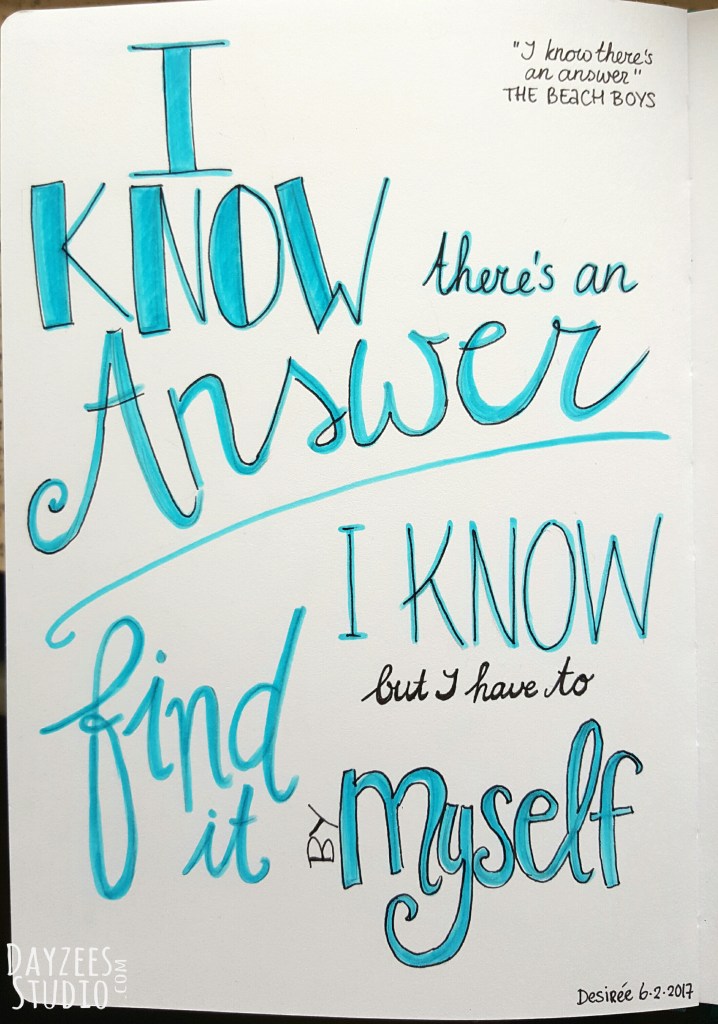 "I know there's
an answer"
THE BEACH BOYS
I
KNOW there's an
Answer
I KNOW
but I have to
find
it BY myself
DAYZEES
STUDIO.COM
Desirée 6-2-2017